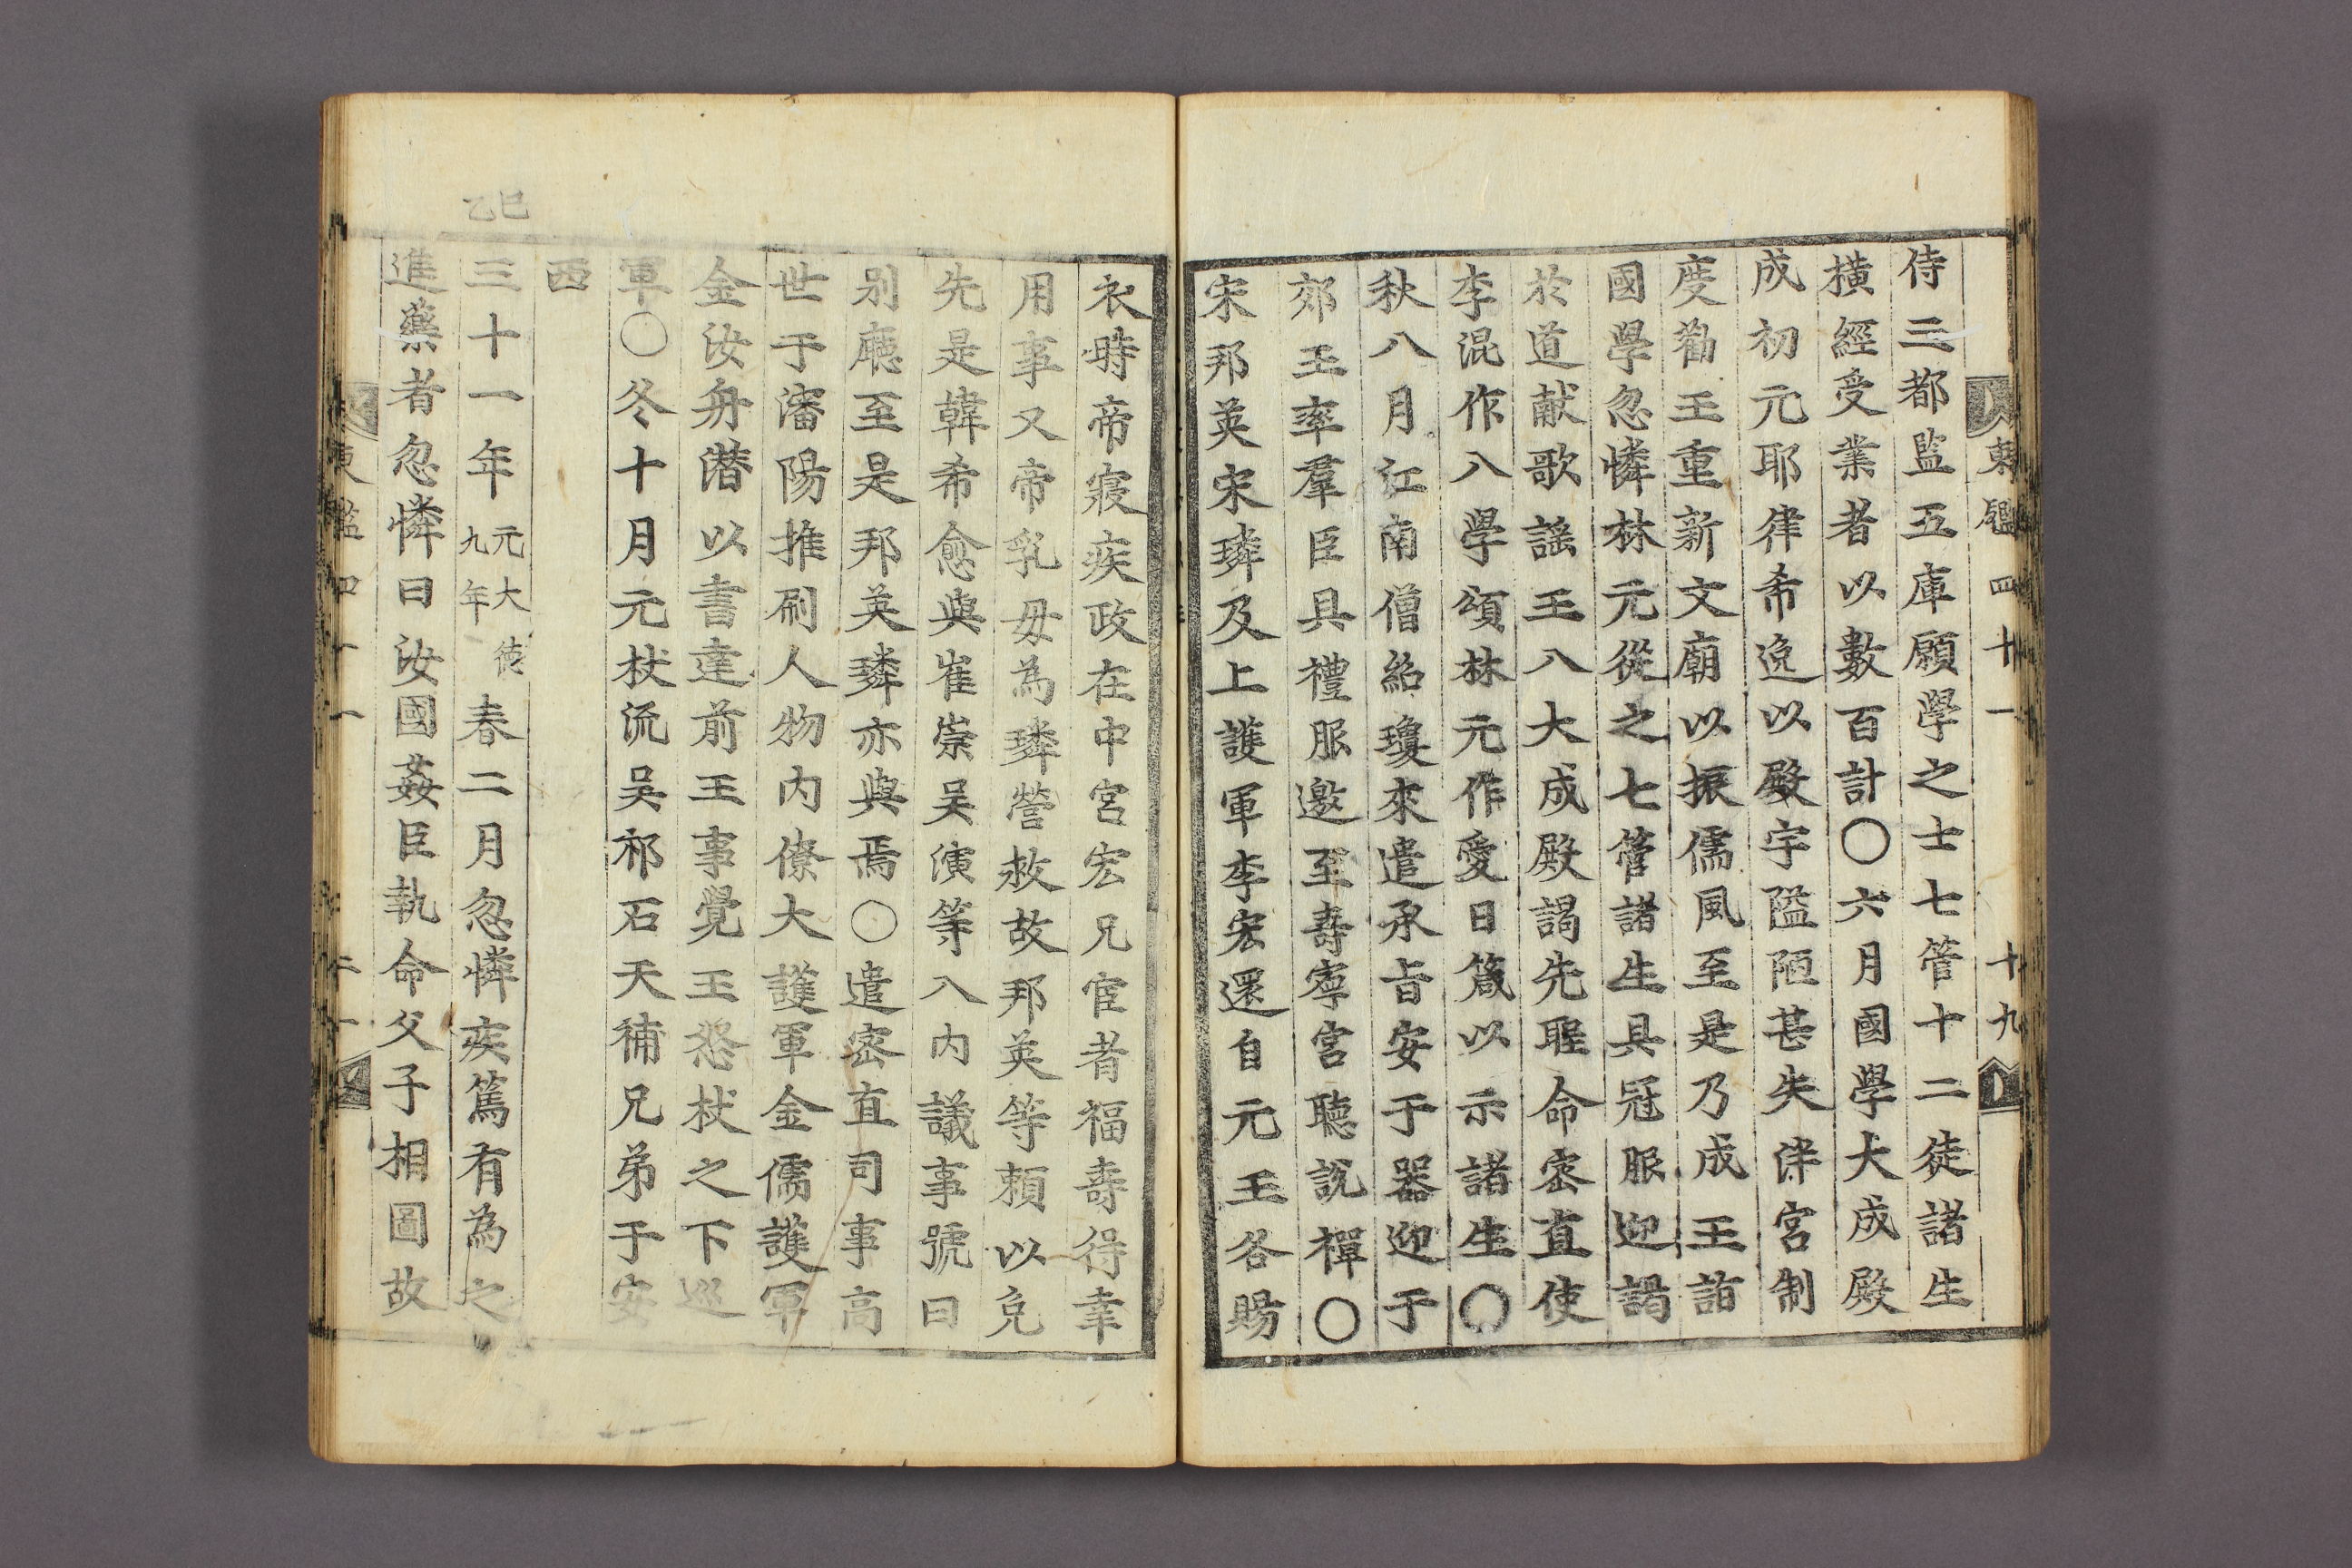 東鑑四十一 十九
侍三都監五庫願學之士七管十二徒諸生
橫經受業者以數百計〇六月國學大成殿
成初元耶律希逸以殿宇隘陋甚失泮宮制
度勸王重新文廟以振儒風至是乃成王詣
國學忽憐林元從之七管諸生具冠服迎謁
於道獻歌謠王入大成殿謁先聖命密直使
李混作入學頌林元作愛日箴以示諸生〇
秋八月江南僧紹瓊來遣承旨安于器迎于
郊王率羣臣具禮服邀至壽寧宮聽說禪〇
宋邦英宋璘及上護軍李宏還自元王各賜
衣時帝寢疾政在中宮宏兄宦者福壽得幸
用事又帝乳母為璘營救故邦英等賴以免
先是韓希愈與崔崇吴演等入内議事號曰
别廳至是邦英璘亦與焉〇遣密直司事高
世于瀋陽推刷人物内僚大護軍金儒護軍
金汝舟潜以書達前王事覺王怒杖之下巡
軍〇冬十月元杖流吴祁石天補兄弟于安
西
乙巳
三十一年元大德九年春二月忽憐疾篤有為之
進藥者忽憐曰汝國姦臣執命父子相圖故